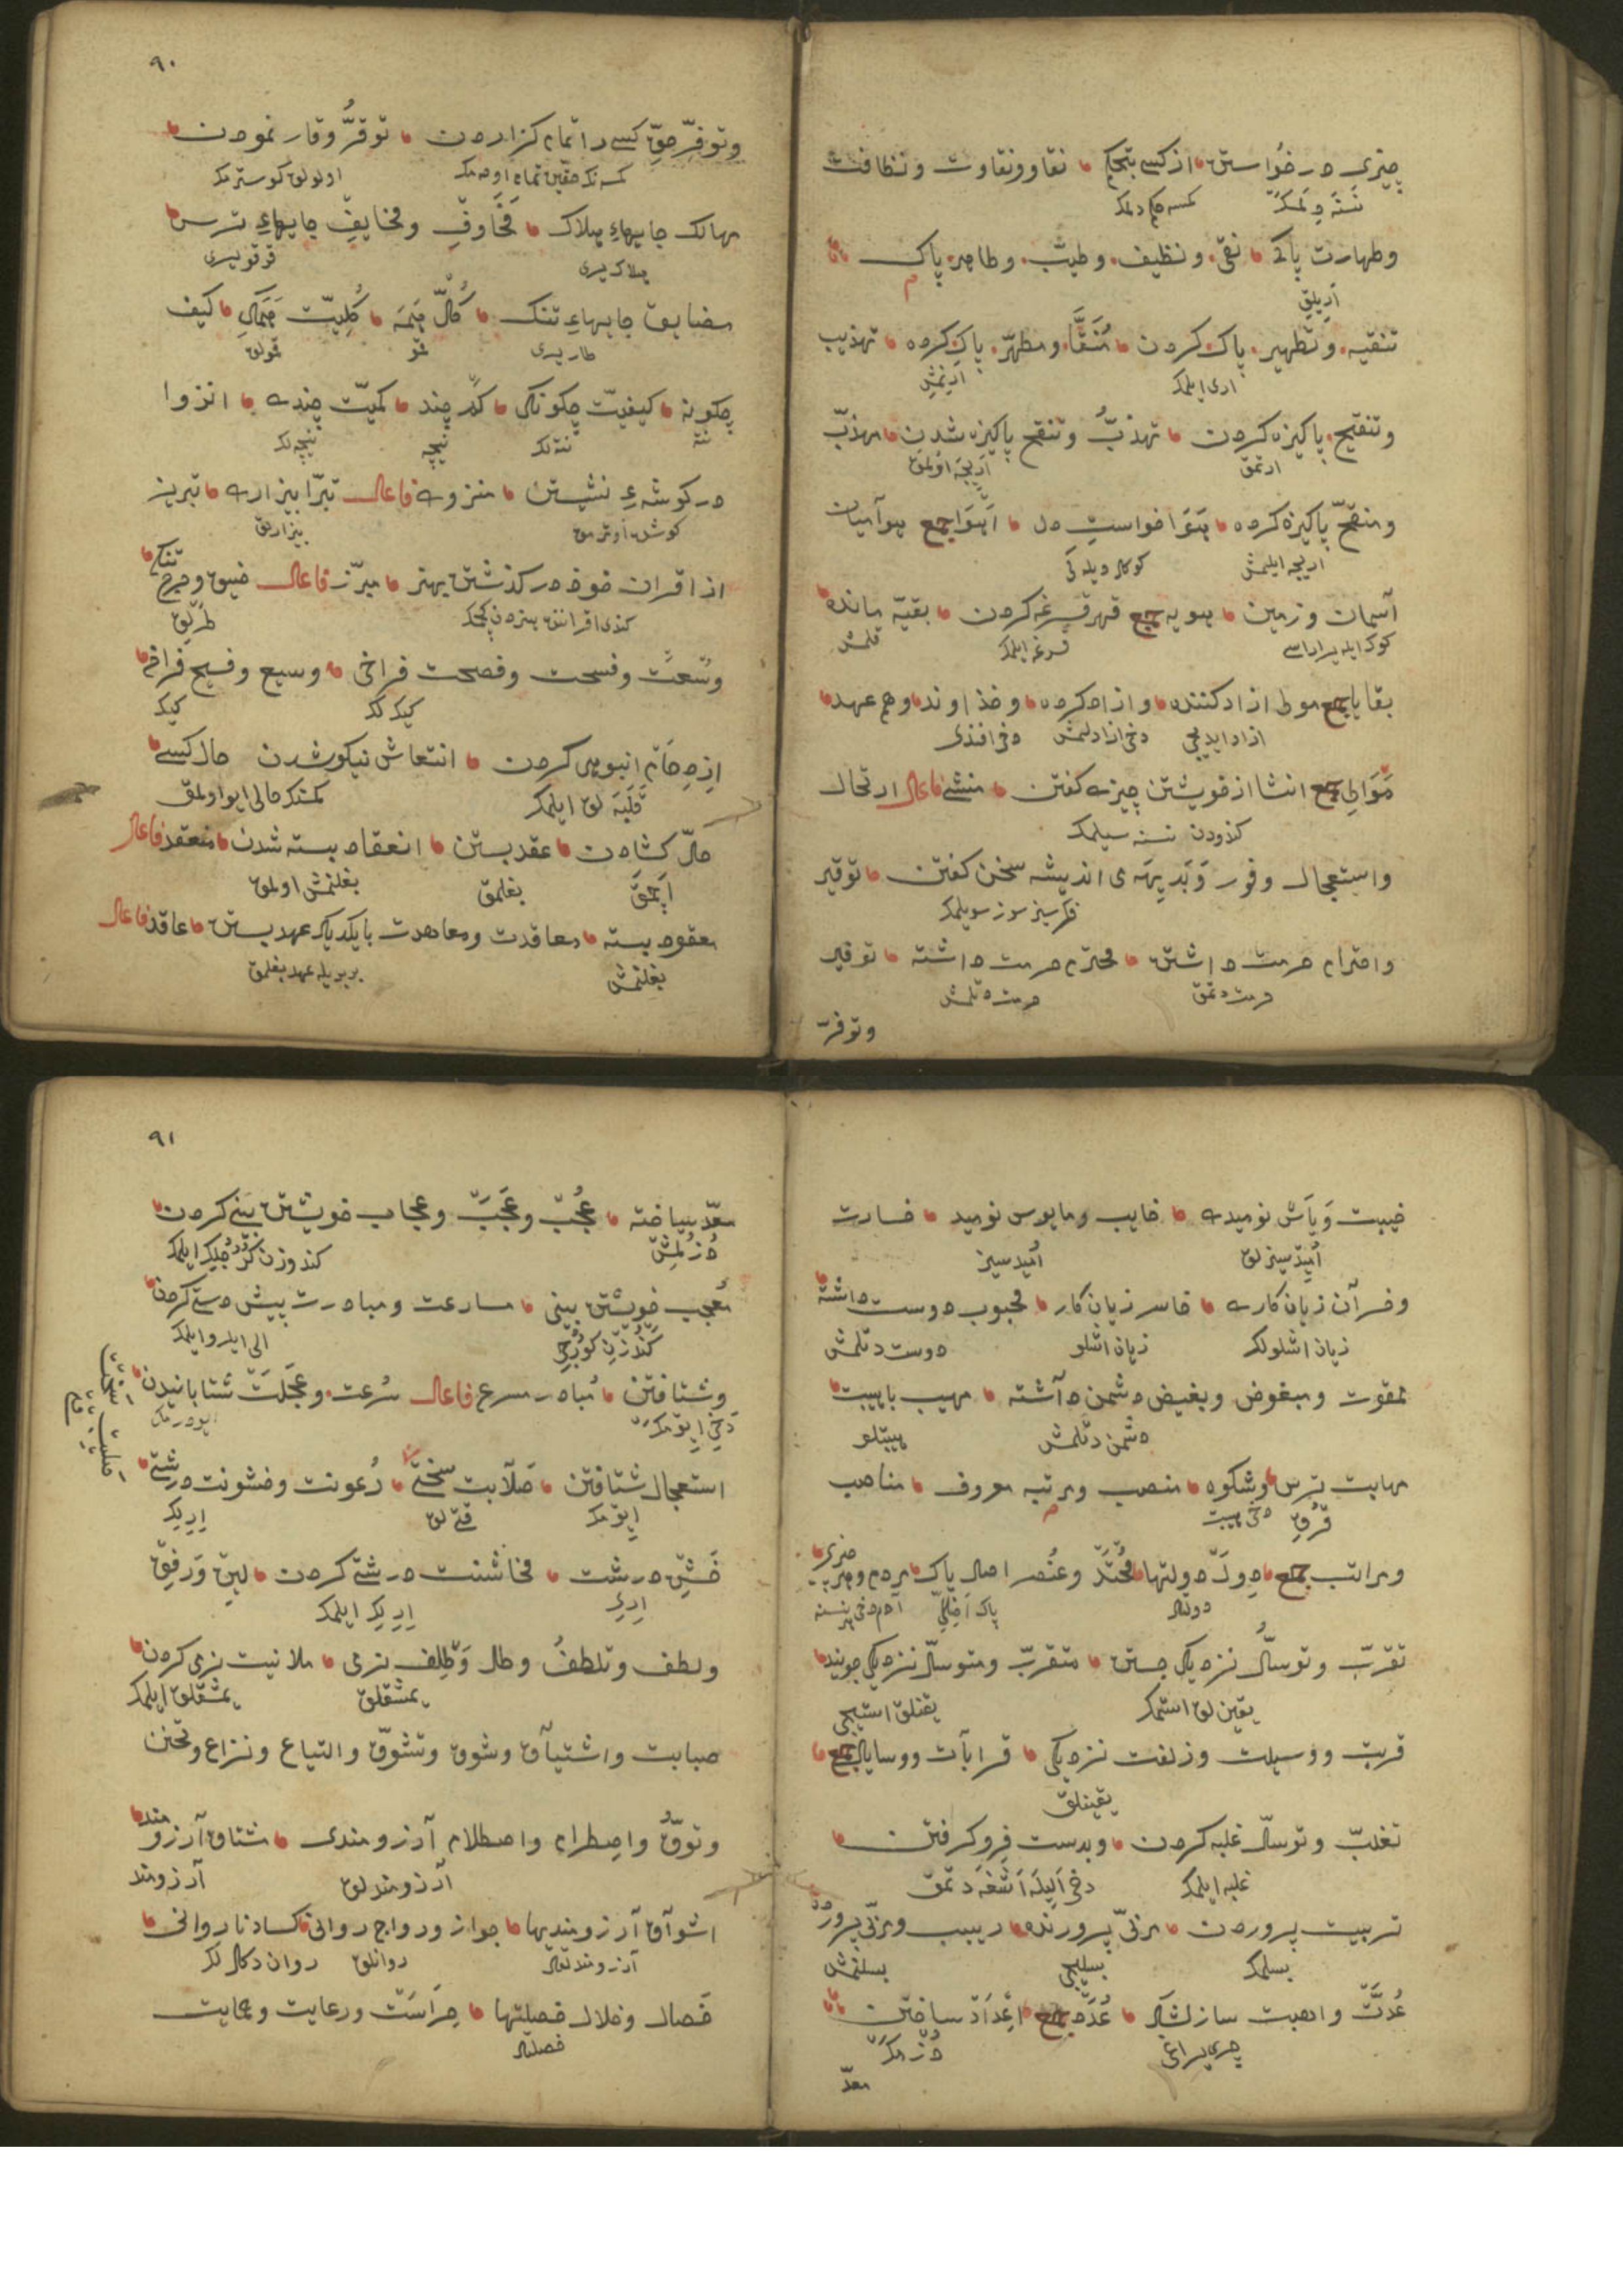 چیزی در خواستن از کسی بتحکم نقاو و نقاوت و نظافت
نسنه دلمک کمسه حکم دلمک
و طهارت پاکی نقی و نظیف و طیب و طاهر پاک
اریلق
تنقیه و تطهیر پاک کردن منقا و مطهر پاک کرده تهذیب
اری ایلمک ارنمش
و تنقیح پاکیزه کردن تهذب و تنقح پاکیزه شدن مهذب
ارتمق اریجه اولمق
و منقح پاکیزه کرده هوا خواست دل اهوا جمع هوا میان
اریجه ایلمش کوکل دیلدکی
آسمان و زمین اهویه جمع قهر قرغه کردن بقیه مانده
کوک ایله یر اراسی قرغه ایلمک قلمش
بقایا جمع مولی ازاد کننده و ازاد کرده و خداوند و هم عهد
ازاد ایدیجی دخی ازادلمش دخی افندی
موالی جمع انشا از خویشتن چیزی کفتن منشی فاعل ارتحال
کندودن نسنه سیلمک
و استعجال و فور و بدیهه بی اندیشه سخن کفتن توقیر
فکرسیز سوز سویلمک
و احترام حرمت داشتن محترم حرمت داشته توقیر
حرمت دتمق حرمت دتلمش
وتوفر
٩٠
و توفر حق کسی را تمام کزاردن توقر و وقار نمودن
کمسه نک حقین تمام اودمک اولولق کوسترمک
مهالک جایهاء هلاک مخاوف و مخایف جایهاء ترس
هلاک یری قرقو یری
مضایق جایهاء تنک کل همه کلیت همکی کیف
طار یری قمو قمولق
چکونه کیفیت چکونکی کم چند کمیت چندی انزوا
نته نته لک نیچه نیچه لک
در کوشهء نشستن منزوی فاعل تبرا بیزاری تبریز
کوشده اوترمق بیزارلق
از اقران خود درکذشتن بهنر مبرز فاعل ضیق و حرج تنکی
کندی اقرانندن هنرده کچمک طرلق
وسعت و فسحت و فصحت فراخی وسیع و فسیح فراخ
کیک لک کیک
ازدحام انبوهی کردن انتعاش نیکو شدن حال کسی
قلبه لق ایلمک کمسنک حالی ایو اولمق
حل کشادن عقد بستن انعقاد بسته شدن منعقد فاعل
اچمق بغلمق بغلنمش اولمق
معقود بسته معاقدت و معاهدت با یکدیکر عهد بستن عاقد فاعل
بغلنمش بر بریله عهد بغلمق
خیبت و یأس نومیدی خایب و مایوس نومید خسارت
امیدسیزلق امیدسیز
و خسران زیان کاری خاسر زیان کار محبوب دوست داشته
زیان اشلولک زیان اشلو دوست دتلمش
ممقوت و مبغوض و بغیض دشمن داشته مهیب با هیبت
دشمن دتلمش هیبتلو
مهابت ترس و شکوه منصب و مرتبه معروف مناصب
قرقو دخی هیبت
و مراتب جمع دول دولتها محتد و عنصر اصل پاک مردم و هر چیزی
دولتلر پاک اصللی آدم دخی هر نسنه
تقرب و توسل نزدیکی جستن متقرب و متوسل نزدیکی جویند
یقین لق استمک یقنلق استیجی
قربت و وسیلت و زلفت نزدیکی قرابات و وسایل جمع
یقینلق
تغلب و توسل غلبه کردن و بدست فرو کرفتن
غلبه ایلمک دخی الیله اشغه دتمق
تربیت پروردن مربی پرورنده ربیب و مربی پرورده
بسلمک بسلیجی بسلنمش
عدت و اهبت ساز لشکر عدد جمع اعداد ساختن
چری یراغی دزمک
معدّ
٩١
معد ساخته عجب و عجب و عجاب خویشتن بینی کردن
دزلمش کندوزن کررجلک ایلمک
معجب خویشتن بینی مسارعت و مبادرت پیش دستی کردن
کندزن کوررجی الی ایلرو ایلمک
و شتافتن مبادر مسرع فاعل سرعت و عجلت شتابانیدن
دخی ایومک ایودرمک
استعجال شتافتن صلابت سختی رعونت و خشونت درشتی
ایومک قتی لق اریلک
خشن درشت مخاشنت درشتی کردن لین و رفق
اری اریلک ایلمک
و لطف و تلطف و طل و تلطف نرمی ملاینت نرمی کردن
یمشقلق یمشقلق ایلمک
صبابت و اشتیاق و شوق و تشوق و التیاع و نزاع و تحنن
و توق و اصطرام و اصطلام آرزومندی مشتاق آرزومند
آرزومندلق آرزومند
اشواق آرزومندیها جواز و رواج روانی کساد ناروانی
آرزومندلقلر روانلق روان دکللک
خصال و خلال خصلتها حراست و رعایت و حمایت
خصلتلر
صلبت سخت
قتی